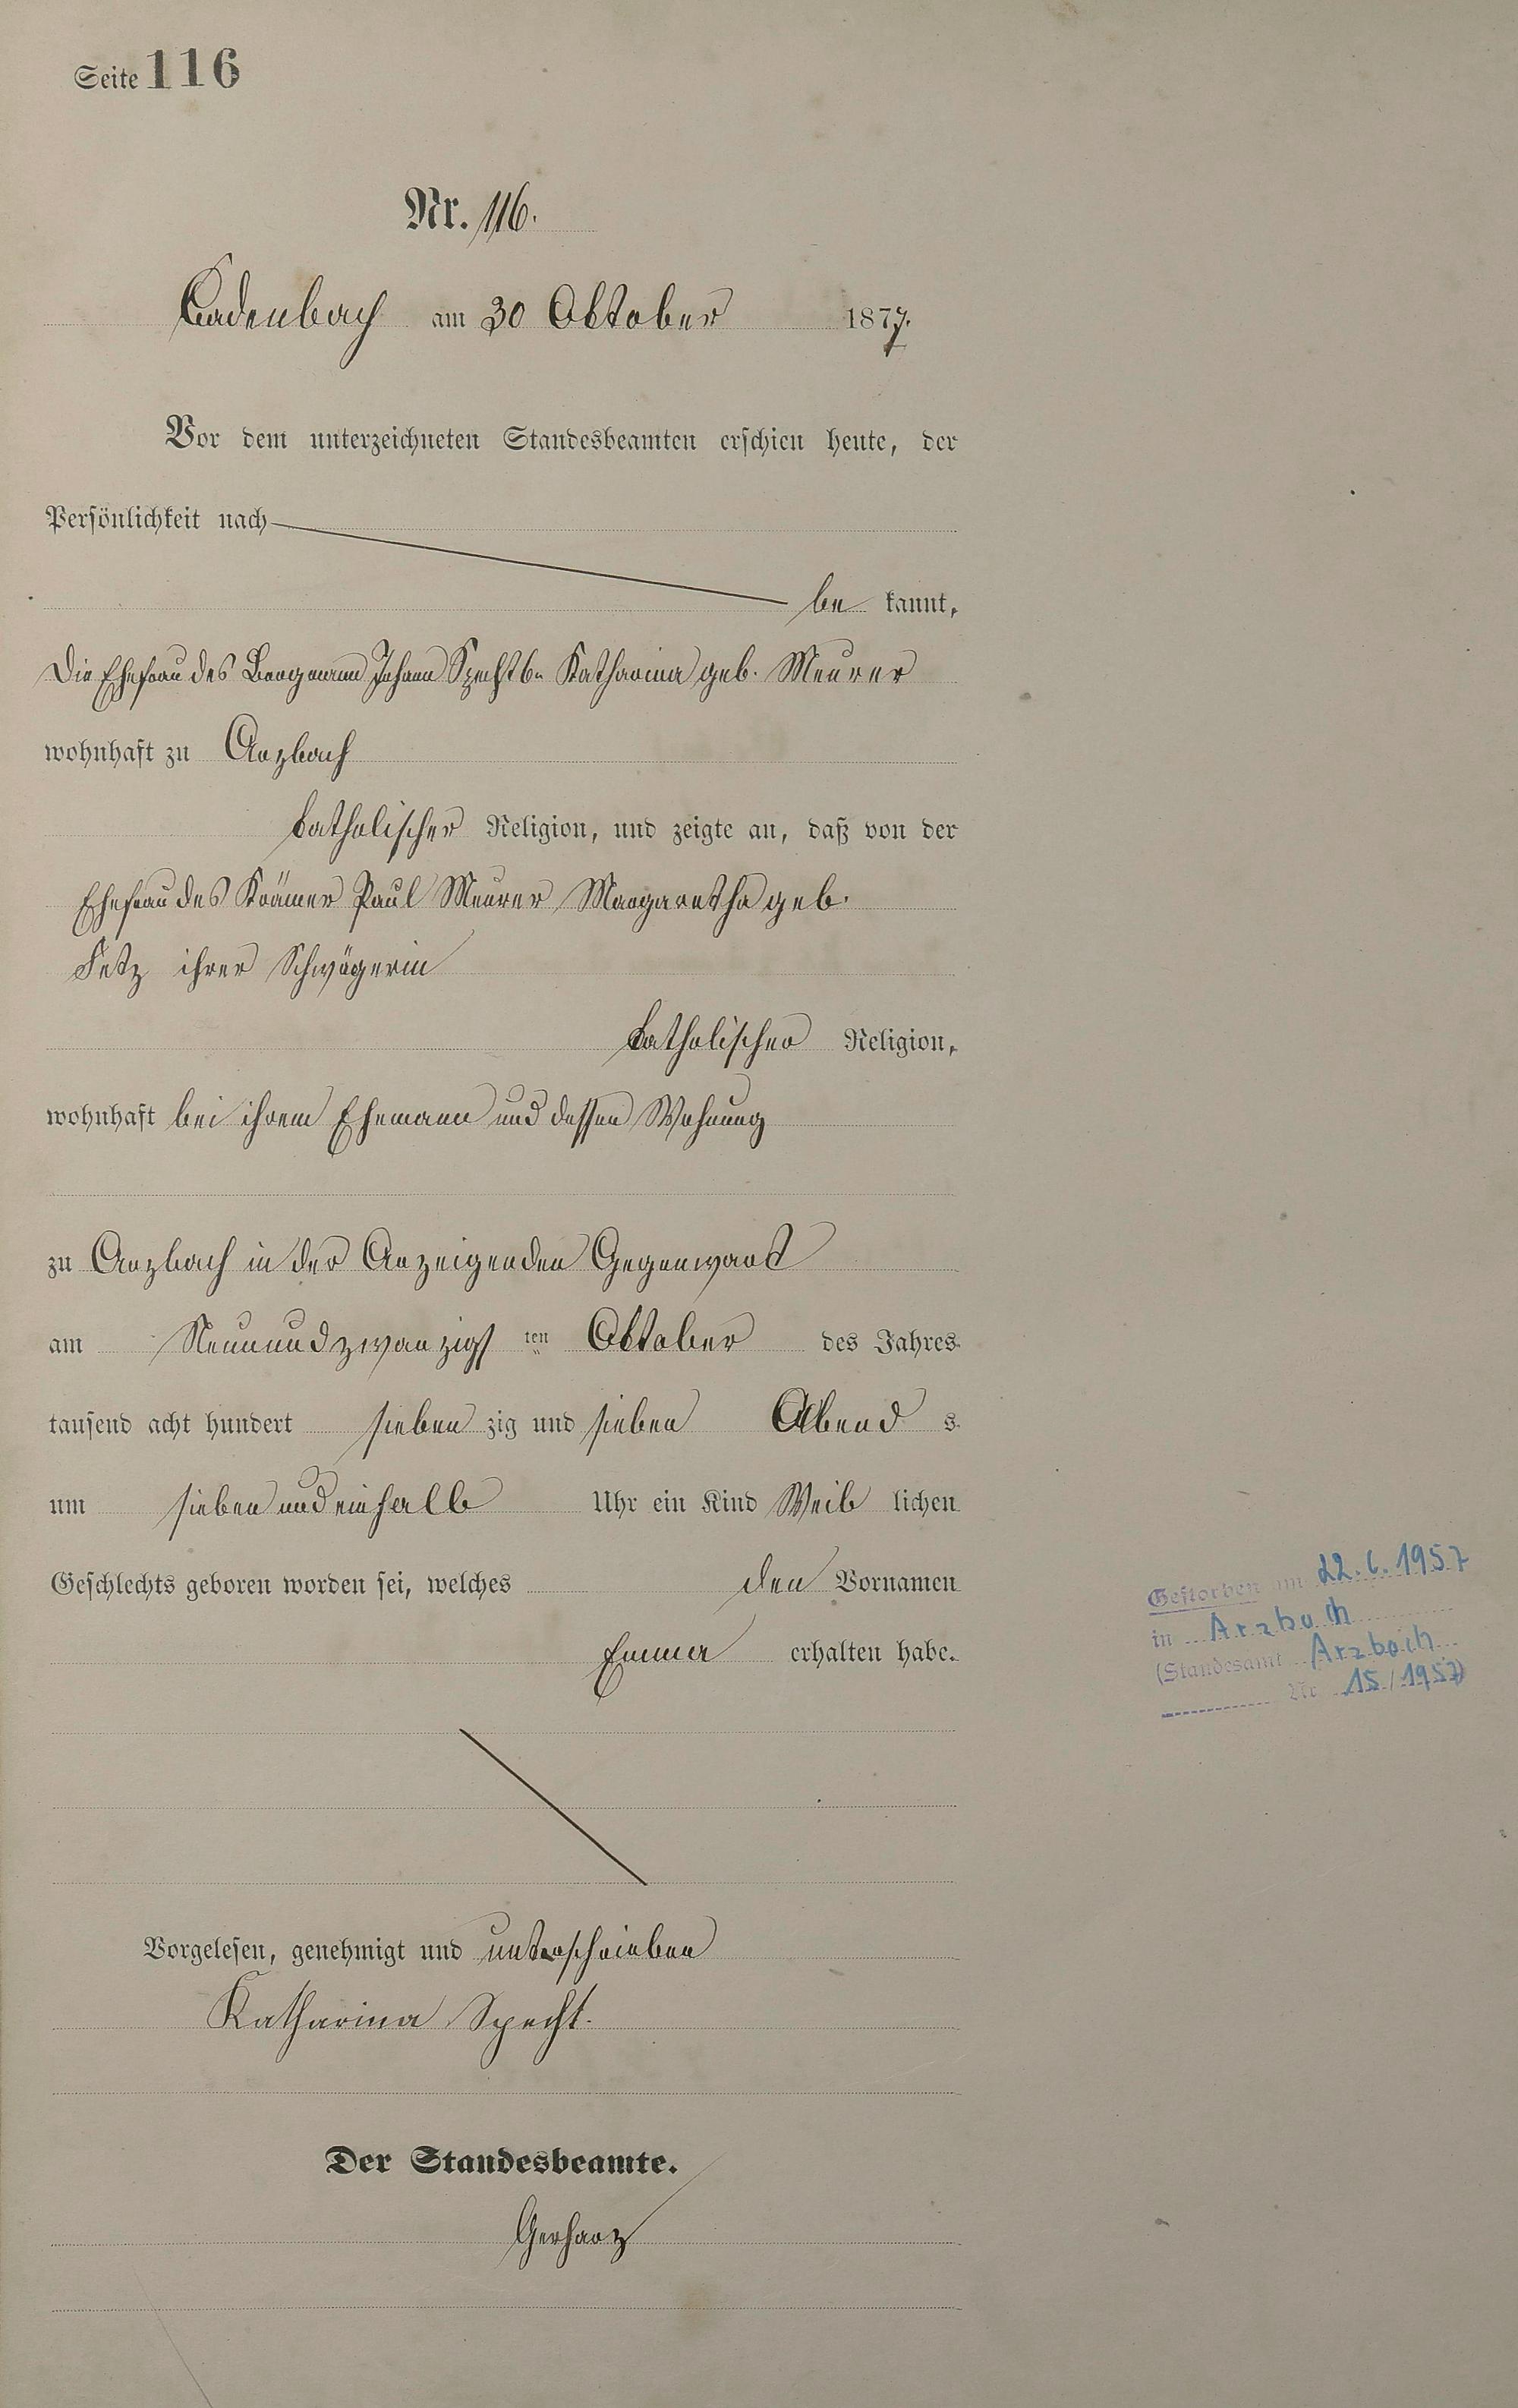 Seite 116
Nr. 116.
Cadenbach am 30 Oktober 1877.
Vor dem unterzeichneten Standesbeamten erschien heute, der
Persönlichkeit nach
be kannt,
Die Ehefrau des Bergmann Johann Specht Katharina geb. Meurer
wohnhaft zu Arzbach
katholischer Religion, und zeigte an, daß von der
Ehefrau des Krämer Paul Meurer Margaretha geb.
Fetz ihrer Schwägerin
katholischer Religion,
wohnhaft bei ihrem Ehemann und dessen Wohnung
zu Arzbach in der Anzeigenden Gegenwart
am Neunundzwanzigs ten Oktober des Jahres
tausend acht hundert sieben zig und sieben Abend s
um sieben und einhalb Uhr ein Kind Weib lichen
Geschlechts geboren worden sei, welches den Vornamen
Emma erhalten habe.
Gestorben am 22.6.1957
in Arzbach
(Standesamt Arzbach
Nr 15/1957)
Vorgelesen, genehmigt und unterschrieben
Katharina Specht.
Der Standesbeamte.
Gerharz